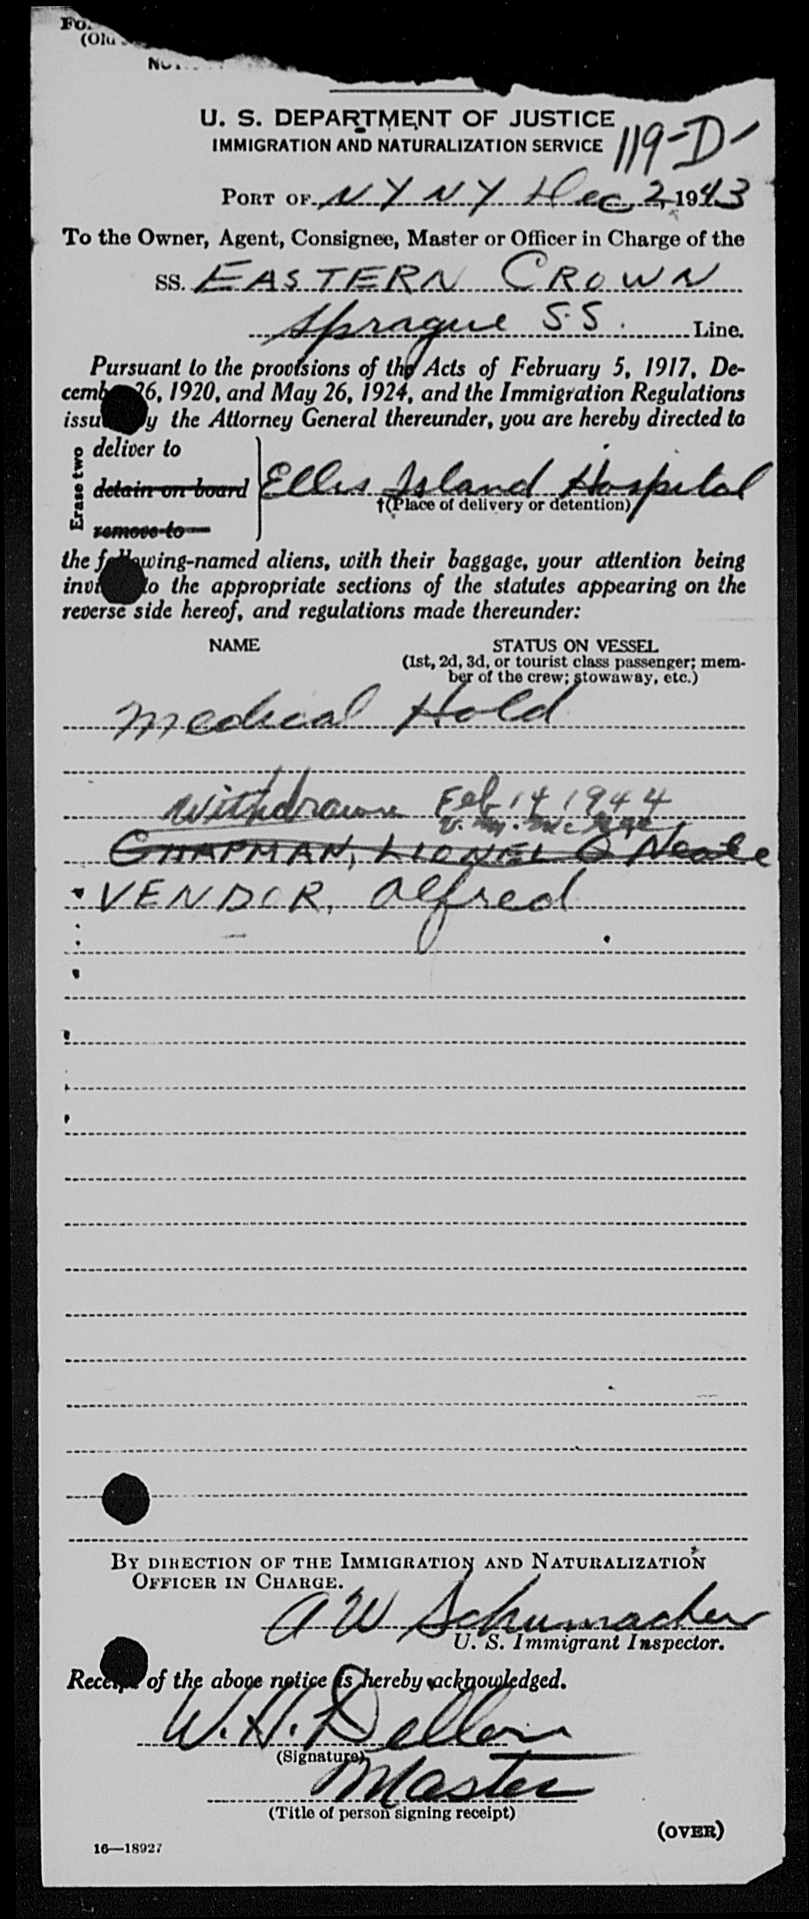 U. S. DEPARTMENT OF JUSTICE
IMMIGRATION AND NATURALIZATION SERVICE
119-D-
PORT OF N Y N Y Dec 2, 1943
To the Owner, Agent, Consignee, Master or Officer in Charge of the
SS. EASTERN CROWN
Sprague S.S. Line.
Pursuant to the provisions of the Acts of February 5, 1917, De-
cember 26, 1920, and May 26, 1924, and the Immigration Regulations
issued by the Attorney General thereunder, you are hereby directed to
Erase two
deliver to
detain on board
remove to
Ellis Island Hospital
†(Place of delivery or detention)
the following-named aliens, with their baggage, your attention being
invited to the appropriate sections of the statutes appearing on the
reverse side hereof, and regulations made thereunder:
NAME STATUS ON VESSEL
(1st, 2d, 3d, or tourist class passenger; mem-
ber of the crew; stowaway, etc.)
Medical Hold
Withdrawn Feb 14 1944
CHAPMAN, LIONEL O'Neale
VENDOR, Alfred
BY DIRECTION OF THE IMMIGRATION AND NATURALIZATION
OFFICER IN CHARGE.
A W Schumacher
U. S. Immigrant Inspector.
Receipt of the above notice is hereby acknowledged.
W. H.
(Signature)
Master
(Title of person signing receipt)
(OVER)
16—18927